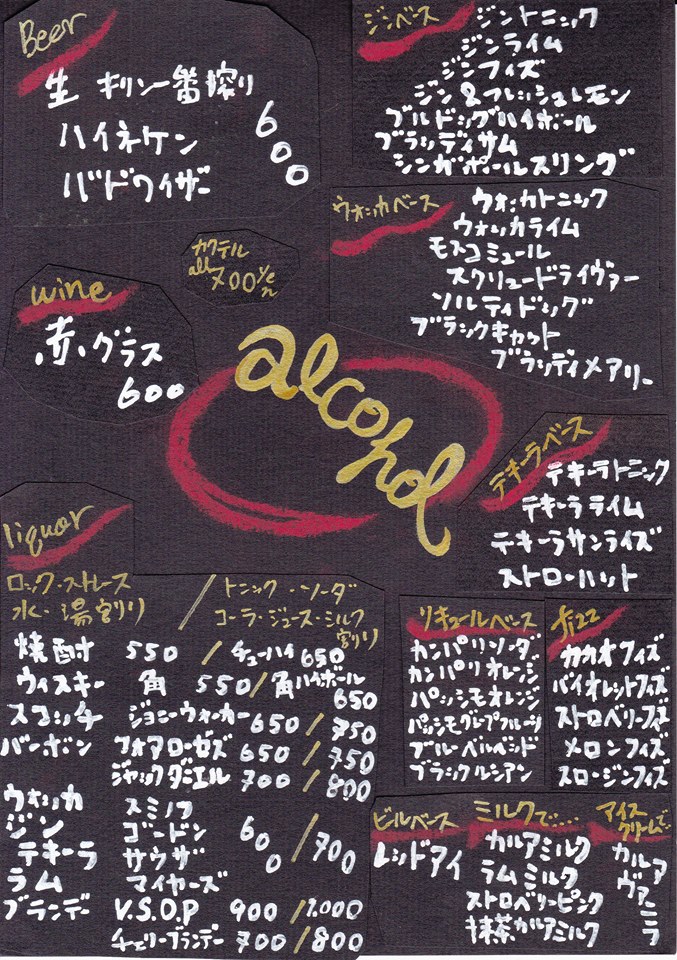 Beer
生 キリン一番搾り
ハイネケン
バドワイザー
600
ジンベース
ジントニック
ジンライム
ジンフィズ
ジン&フレッシュレモン
ブルドッグハイボール
ブラッディサム
シンガポールスリング
ウォッカベース
ウォッカトニック
ウォッカライム
モスコミュール
スクリュードライヴァー
ソルティドッグ
ブラックキャット
ブラッディメアリー
カクテル
all 700yen
wine
赤グラス
600
alcohol
テキーラベース
テキーラトニック
テキーラライム
テキーラサンライズ
ストローハット
liquor
ロック・ストレース / トニック・ソーダ
水・湯割り コーラ・ジュース・ミルク
割り
焼酎 550 / チューハイ 650
ウィスキー 角 550 / 角ハイボール
650
スコッチ ジョニーウォーカー 650 / 750
バーボン フォアローゼズ 650 / 750
ジャックダニエル 700 / 800
ウォッカ スミノフ
ジン ゴードン
テキーラ サウザ
ラム マイヤーズ
600 / 700
ブランデー V.S.O.P 900 / 1.000
チェリーブランデー 700 / 800
リキュールベース
カンパリソーダ
カンパリオレンジ
パッシモオレンジ
パッシモグレプフルーツ
ブルーベルベッド
ブラックルシアン
fizz
カカオフィズ
バイオレットフィズ
ストロベリーフィズ
メロンフィズ
スロージンフィズ
ビルベース
レッドアイ
ミルクで.....
カルアミルク
ラムミルク
ストロベリーピンク
抹茶カルアミルク
アイス
クリームで...
カルア
ヴァニラ